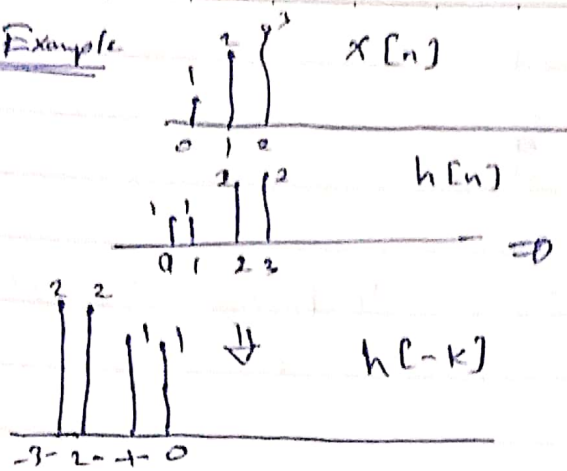 Example
3
2
1
x[n]
0 1 2
h[n]
1 1 2 2
0 1 2 3
=D
2 2
1 1
h[-k]
-3 -2 -1 0